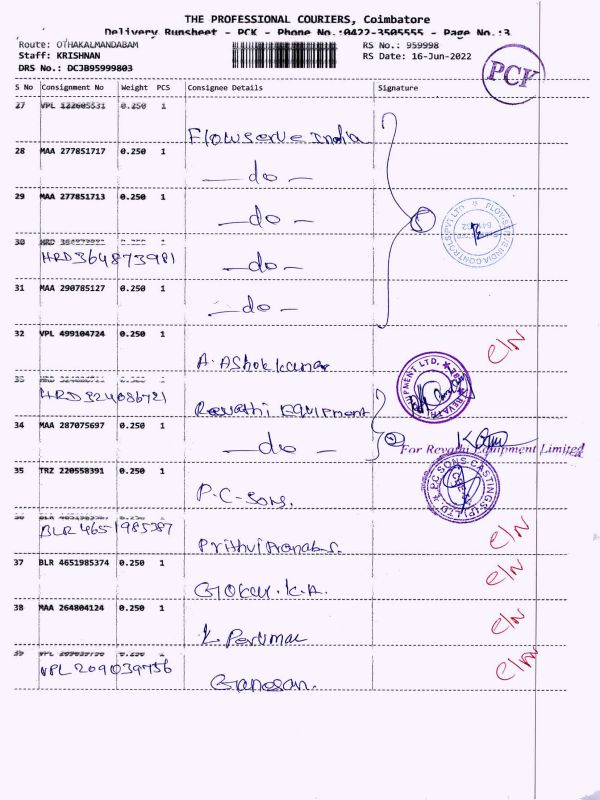 THE PROFESSIONAL COURIERS, Coimbatore
Delivery Runsheet - PCK - Phone No.:0422-3505555 - Page No.:3
Route: OTHAKALMANDABAM RS No.: 959998
Staff: KRISHNAN RS Date: 16-Jun-2022
DRS No.: DCJB95999803
PCK
S No Consignment No Weight PCS Consignee Details Signature
27 VPL 122605531 0.250 1
Flowserve India
28 MAA 277851717 0.250 1
—do—
29 MAA 277851713 0.250 1
—do—
30
HRD364873981
—do—
31 MAA 290785127 0.250 1
—do—
5
FLOWSERVE INDIA CONTROLS PVT LTD
32 VPL 499104724 0.250 1
A. Ashokkumar C/N
33
HRD324086721
Revathi Equipment
34 MAA 287075697 0.250 1
—do— 2
For Revathi Equipment Limited
35 TRZ 220558391 0.250 1
P.C-Sons.
P.C SONS CASTINGS (P) LTD.
36
BLR 4651985387
C/N
37 BLR 4651985374 0.250 1
Gokul.K.A. C/N
38 MAA 264804124 0.250 1
K. Perumal C/N
39
VPL 209039756
Ganesan. C/N